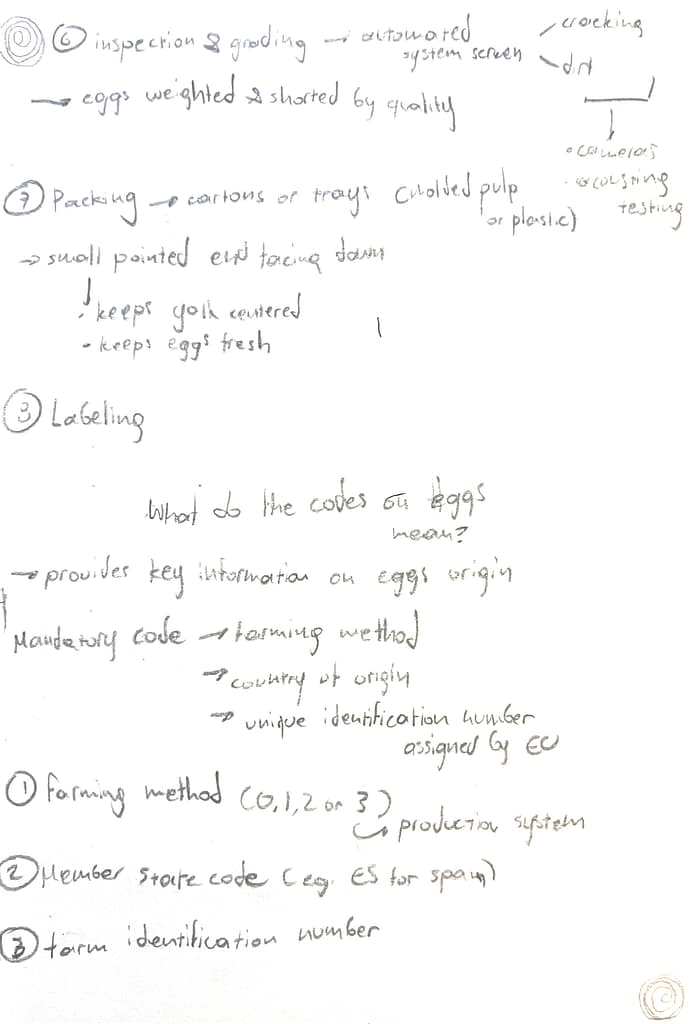 ⑥ inspection & grading → automated system screen
cracking
dirt
→ eggs weighted & shorted by quality
• cameras
• acousting testing
⑦ Packing → cartons or trays (molded pulp
or plastic)
→ small pointed end facing down
• keeps yolk centered
• keeps eggs fresh
③ Labeling
What do the codes on eggs
mean?
→ provides key information on eggs origin
Mandatory code → farming method
→ country of origin
→ unique identification number
assigned by EU
① Farming method (0,1,2 or 3)
↳ production system
② Member state code (eg. ES for spain)
③ farm identification number